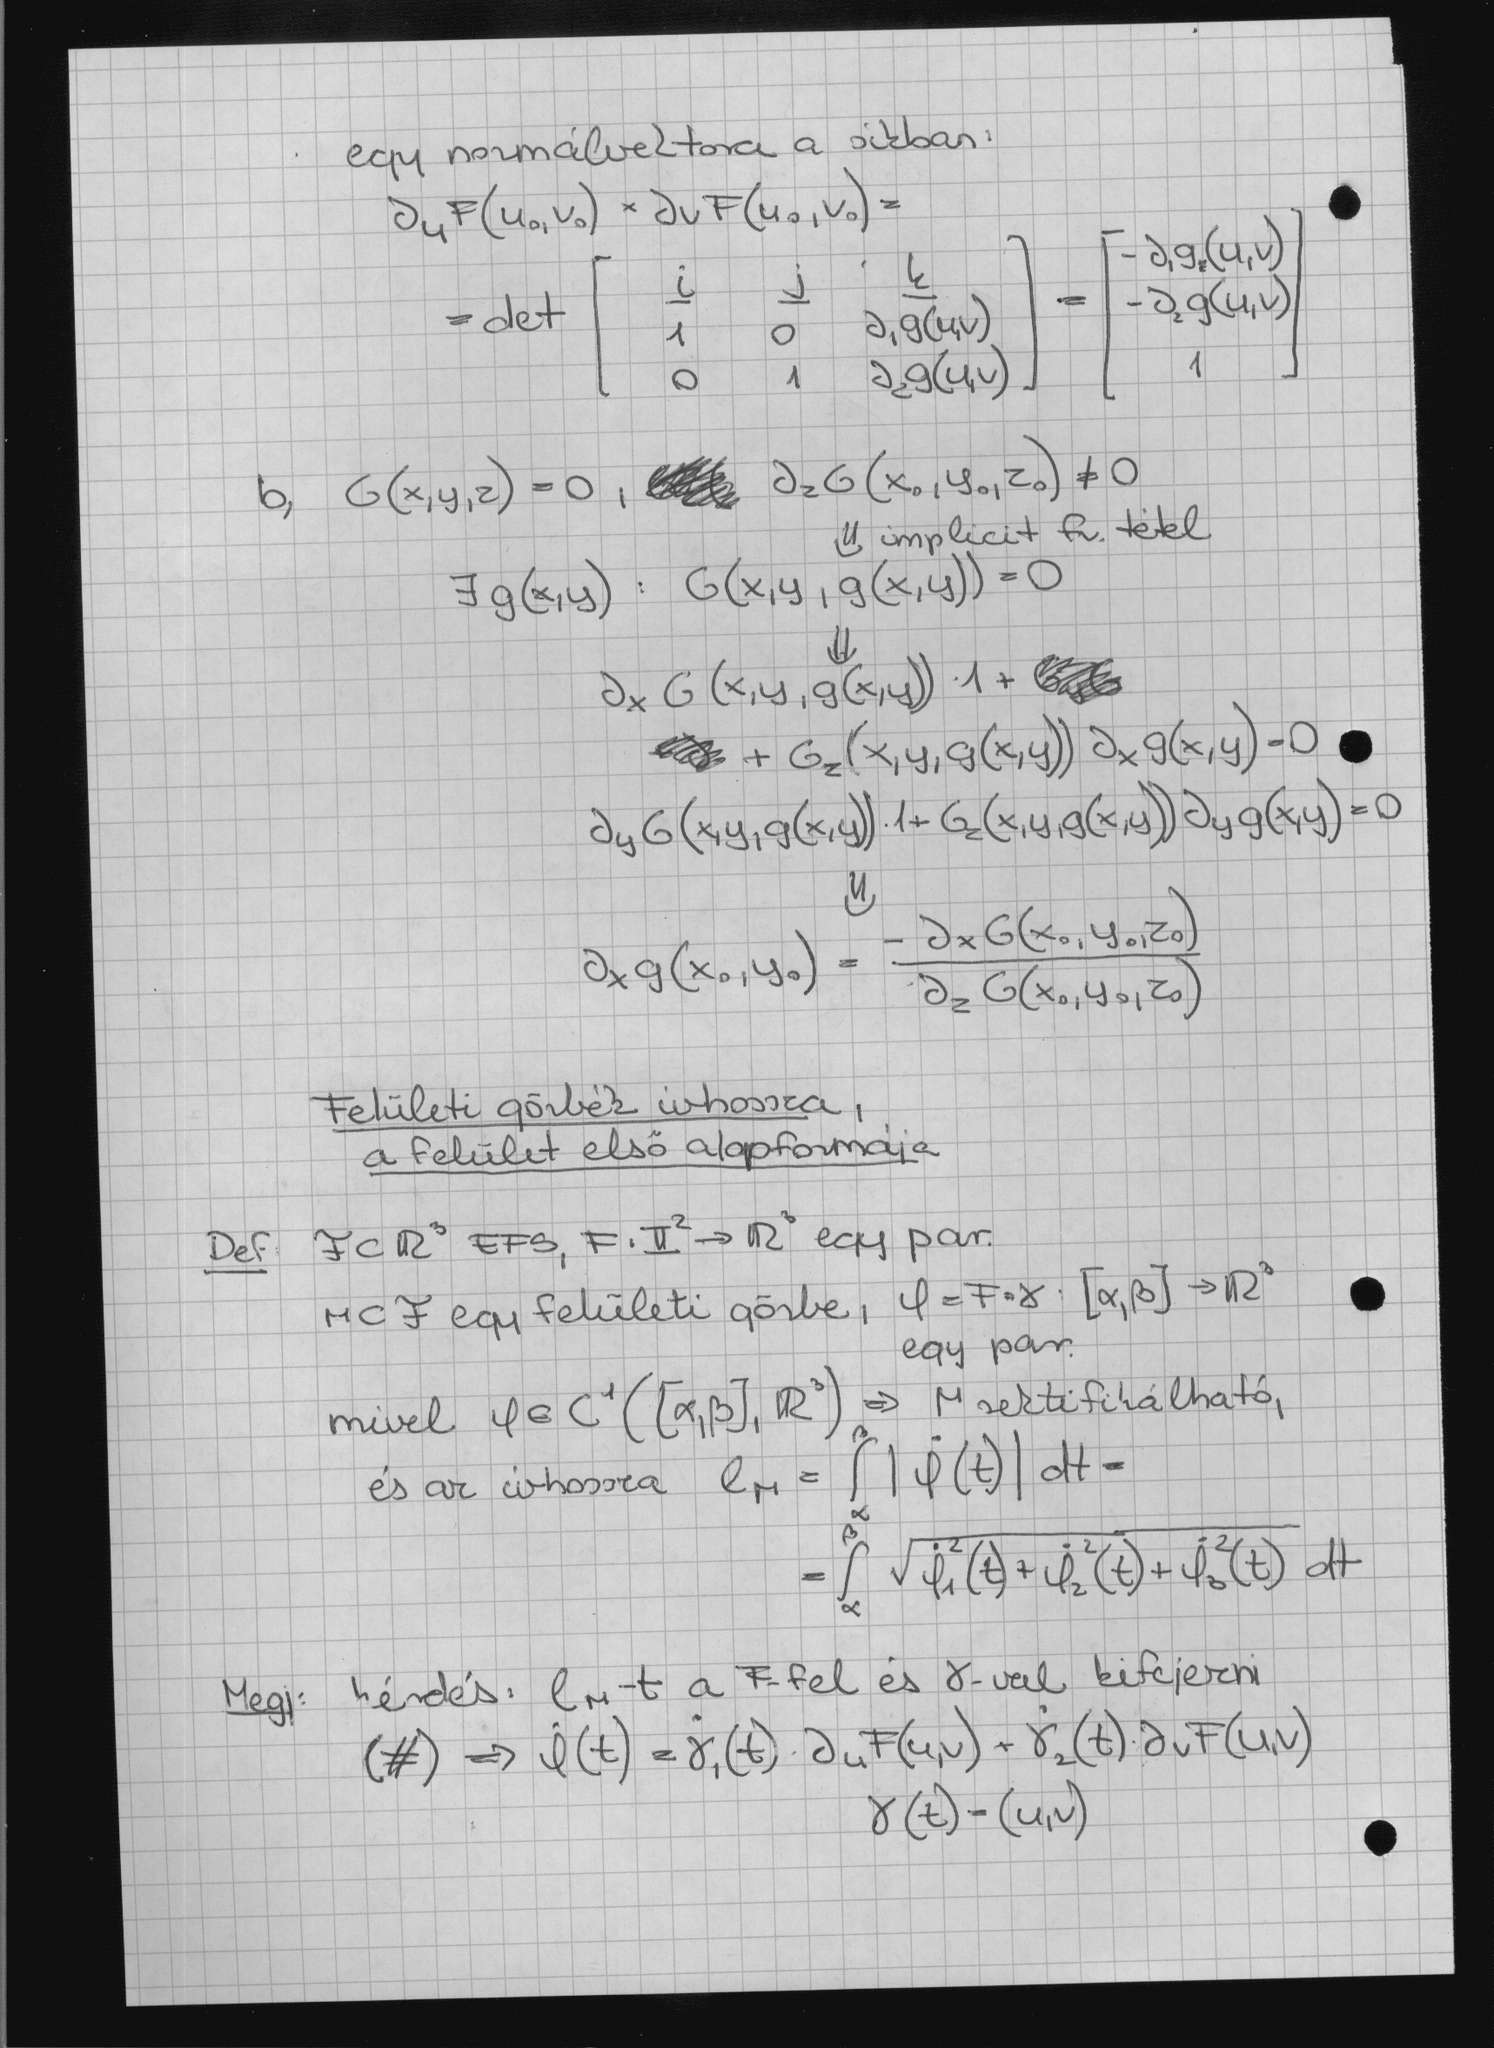 egy normálvektora a síkban:
∂uF(u₀,v₀) × ∂vF(u₀,v₀) =
= det [ i j k ; 1 0 ∂₁g(u,v) ; 0 1 ∂₂g(u,v) ] = [ -∂₁g(u,v) ; -∂₂g(u,v) ; 1 ]
b, G(x,y,z) = 0, ∂zG(x₀,y₀,z₀) ≠ 0
⇓ implicit fv. tétel
∃g(x,y) : G(x,y,g(x,y)) = 0
⇓
∂xG(x,y,g(x,y))·1 +
+ Gz(x,y,g(x,y)) ∂xg(x,y) = 0
∂yG(x,y,g(x,y))·1 + Gz(x,y,g(x,y)) ∂yg(x,y) = 0
⇓
∂xg(x₀,y₀) = -∂xG(x₀,y₀,z₀) / ∂zG(x₀,y₀,z₀)
Felületi görbék ívhossza,
a felület első alapformája
Def: ℱ⊂ℝ³ EFS, F: 𝕀² → ℝ³ egy par.
M⊂ℱ egy felületi görbe, φ = F∘γ : [α,β] → ℝ³
egy par.
mivel φ∈C¹([α,β],ℝ³) ⇒ M rektifikálható,
és az ívhossza ℓ_M = ∫_α^β |φ̇(t)| dt =
= ∫_α^β √(φ̇₁²(t) + φ̇₂²(t) + φ̇₃²(t)) dt
Megj: kérdés: ℓ_M-t a F-fel és γ-val kifejezni
(#) ⇒ φ̇(t) = γ̇₁(t)·∂uF(u,v) + γ̇₂(t)·∂vF(u,v)
γ(t) = (u,v)